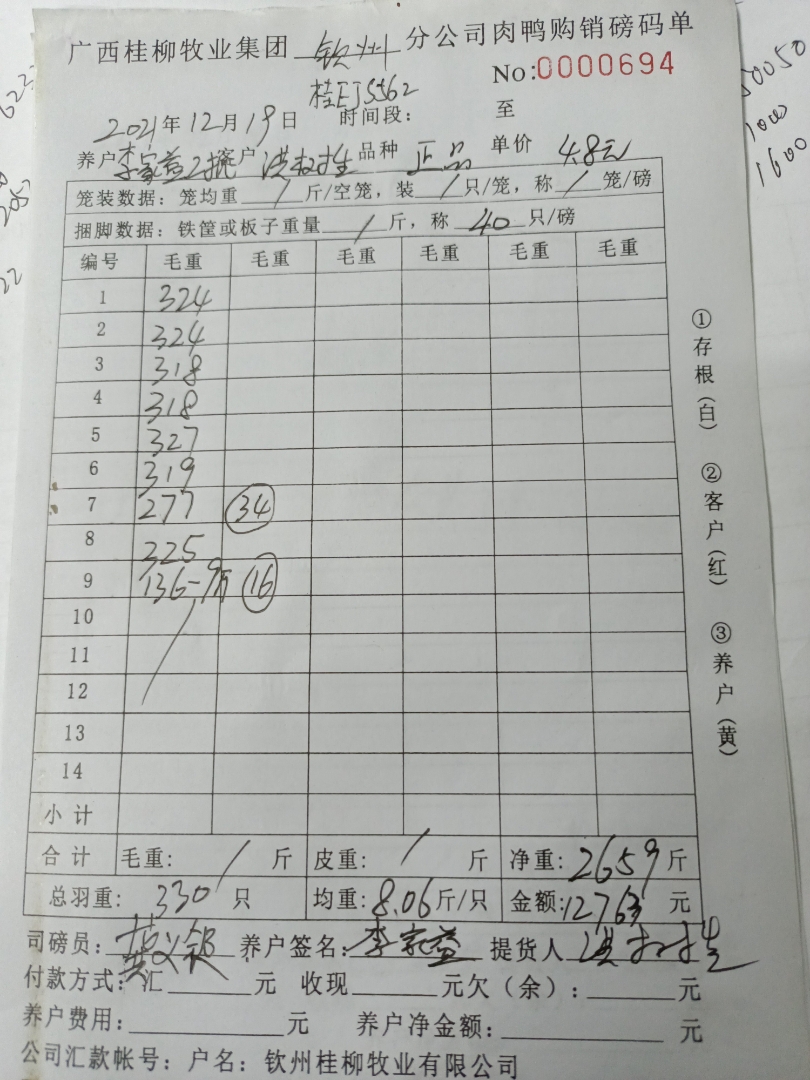 广西桂柳牧业集团 钦州 分公司肉鸭购销磅码单
No:0000694
桂EJS562
2021年12月19日 时间段: 至
养户 李家益2批 客户 洪 生 品种 正品 单价 4.8元
笼装数据: 笼均重 / 斤/空笼, 装 / 只/笼, 称 / 笼/磅
捆脚数据: 铁筐或板子重量 / 斤, 称 40 只/磅
编号 毛重 毛重 毛重 毛重 毛重 毛重
1 324
2 324
3 318
4 318
5 327
6 319
7 277 34
8 325
9 136-9斤 16
10
11
12
13
14
小计
合计 毛重: / 斤 皮重: / 斤 净重: 2659 斤
总羽重: 330 只 均重: 8.06 斤/只 金额: 12763 元
司磅员: 黄义 养户签名: 李家益 提货人 洪 生
付款方式: 汇 元 收现 元欠(余): 元
养户费用: 元 养户净金额: 元
公司汇款帐号: 户名: 钦州桂柳牧业有限公司
①存根(白) ②客户(红) ③养户(黄)
50050
1000
1600
622
205
22